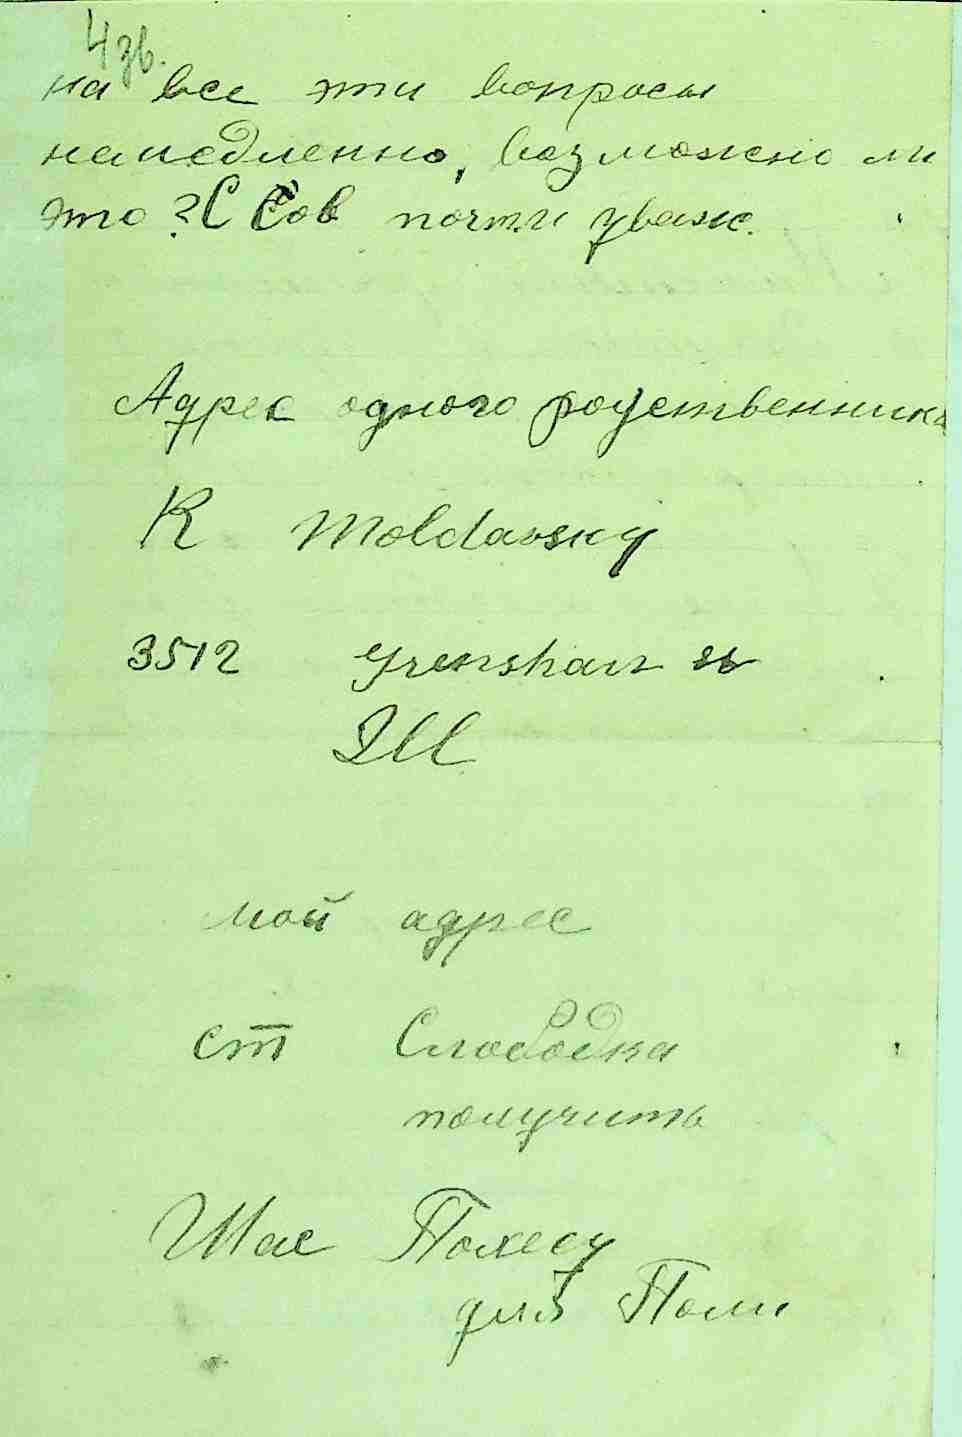 4 зв.
на все эти вопросы
немедленно, возможно ли
это? С Сов почти уваж.
Адрес одного родственника
K Moldavsky
3512 Grenshaw st
Ill
мой адрес
ст Слободка
получить
Шае Полесу
для Поли